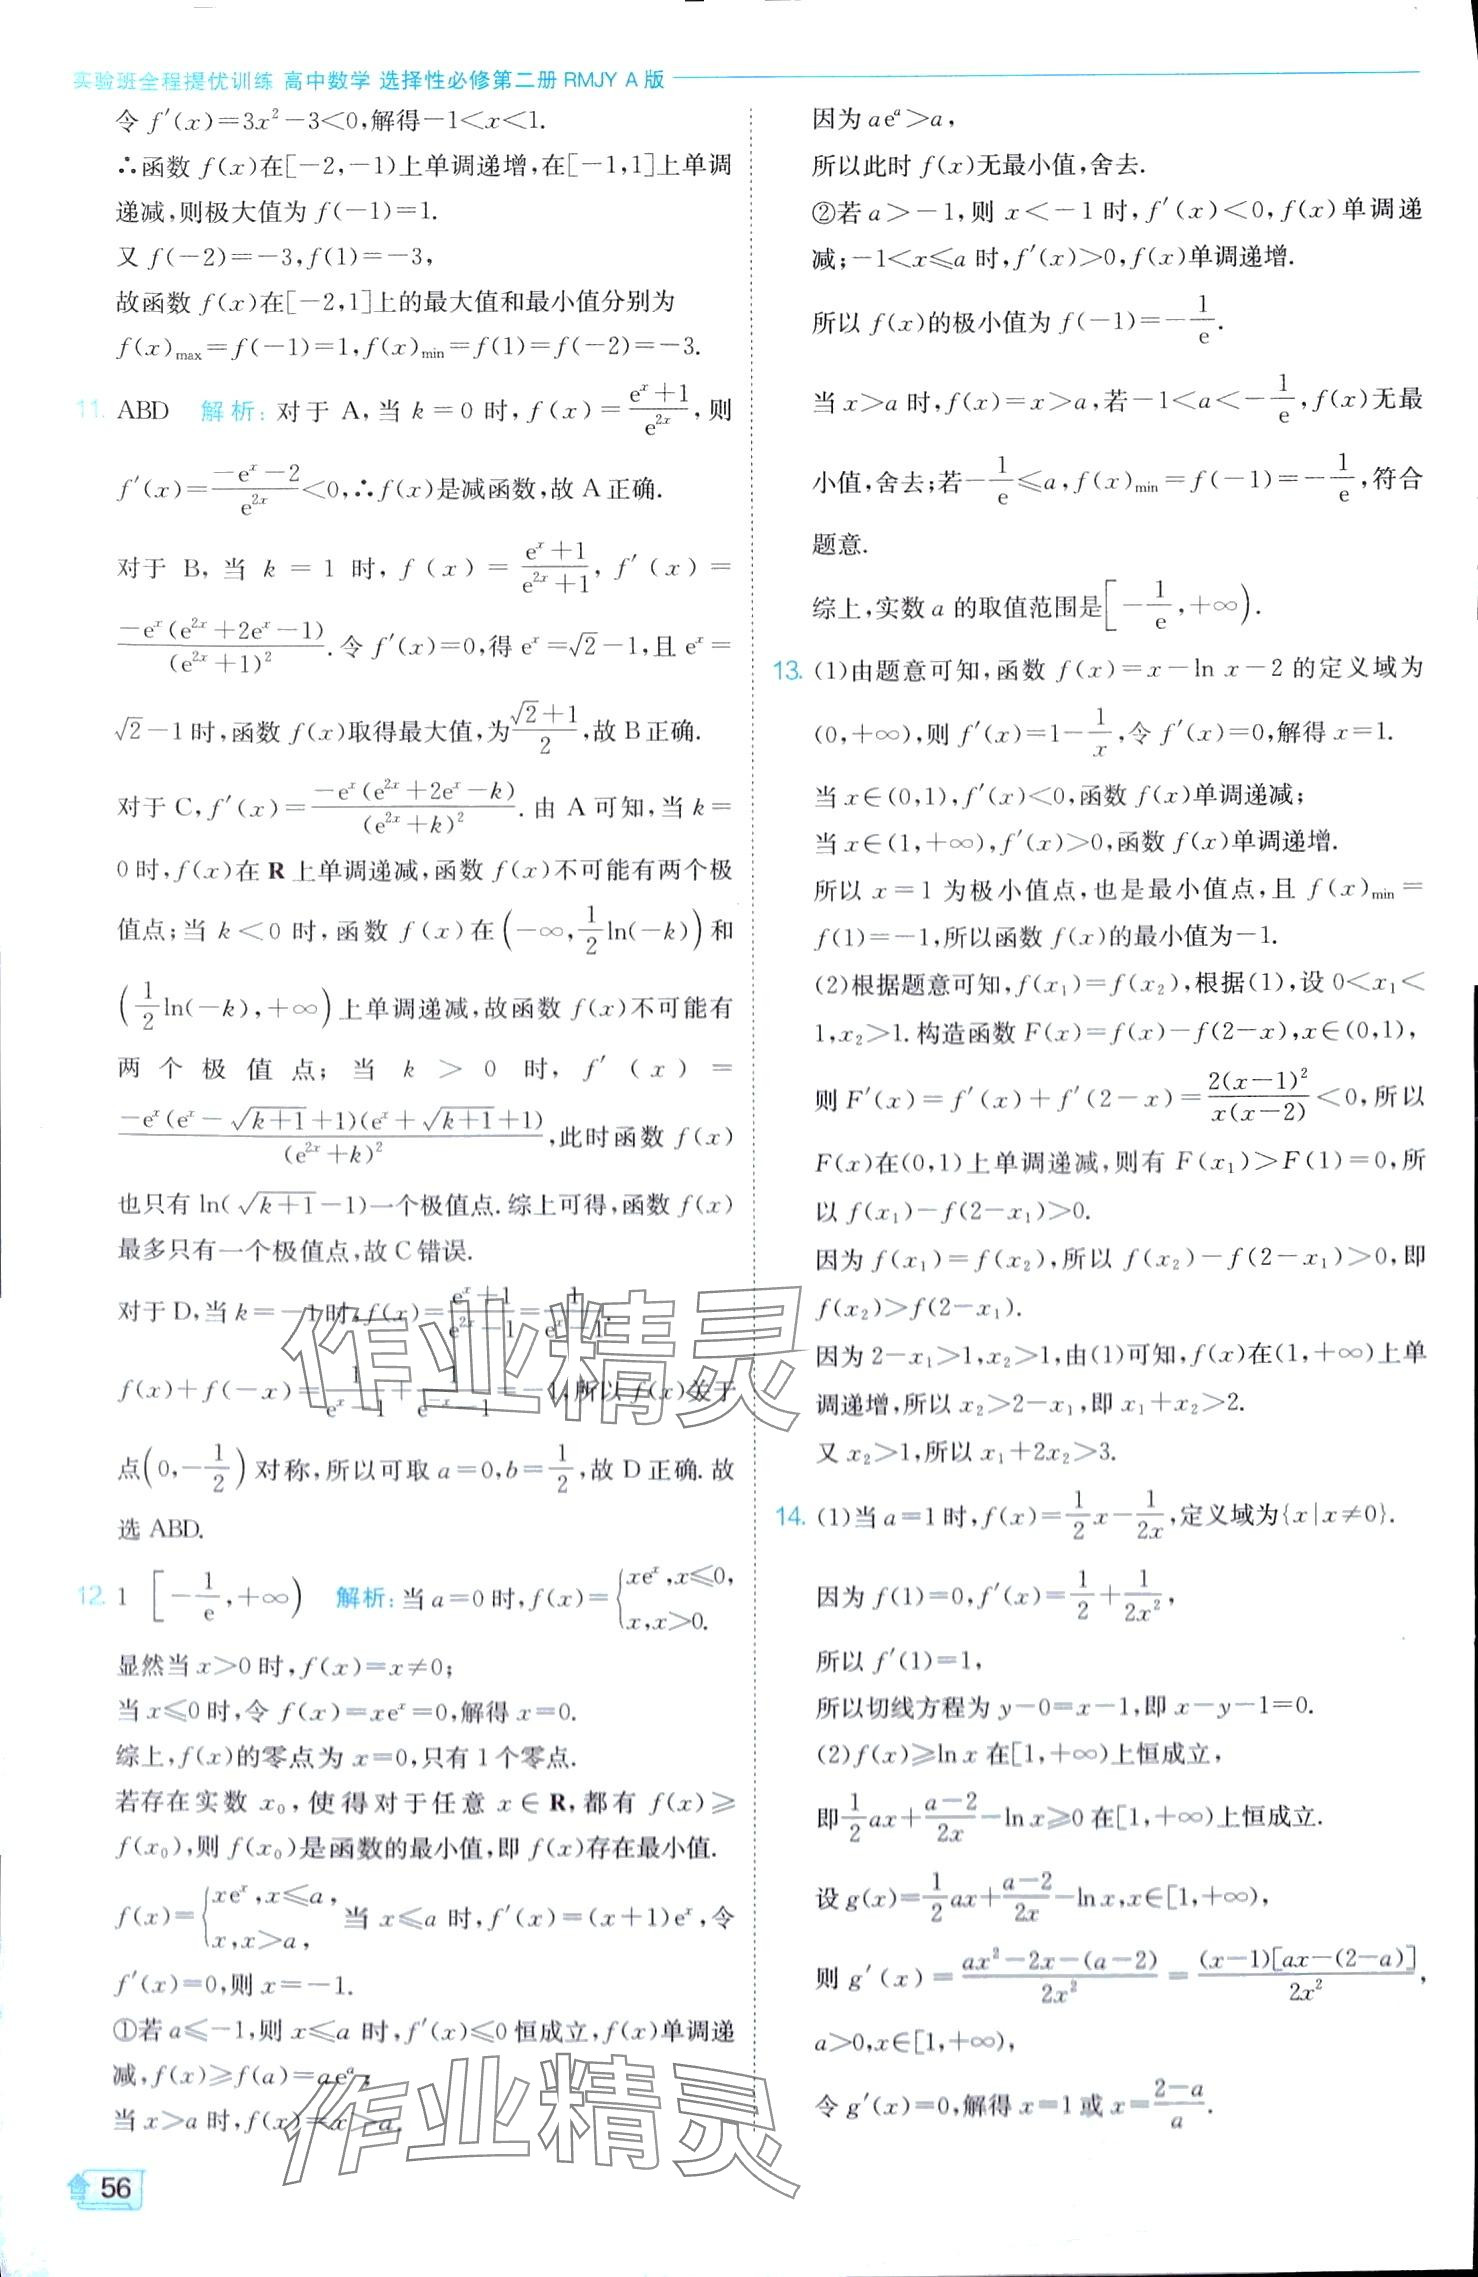 实验班全程提优训练 高中数学 选择性必修第二册 RMJY A 版
令 f′(x)=3x²-3<0,解得-1<x<1.
∴函数 f(x)在[-2,-1)上单调递增,在[-1,1]上单调
递减,则极大值为 f(-1)=1.
又 f(-2)=-3,f(1)=-3,
故函数 f(x)在[-2,1]上的最大值和最小值分别为
f(x)max=f(-1)=1,f(x)min=f(1)=f(-2)=-3.
11. ABD 解析:对于 A,当 k=0 时,f(x)=(eˣ+1)/e²ˣ,则
f′(x)=(-eˣ-2)/e²ˣ<0,∴f(x)是减函数,故 A 正确.
对于 B,当 k=1 时,f(x)=(eˣ+1)/(e²ˣ+1),f′(x)=
-eˣ(e²ˣ+2eˣ-1)/(e²ˣ+1)².令 f′(x)=0,得 eˣ=√2-1,且 eˣ=
√2-1时,函数 f(x)取得最大值,为(√2+1)/2,故 B 正确.
对于 C,f′(x)=-eˣ(e²ˣ+2eˣ-k)/(e²ˣ+k)².由 A 可知,当 k=
0时,f(x)在 R 上单调递减,函数 f(x)不可能有两个极
值点;当 k<0 时,函数 f(x)在(-∞,1/2 ln(-k))和
(1/2 ln(-k),+∞)上单调递减,故函数 f(x)不可能有
两个极值点;当 k>0 时,f′(x)=
-eˣ(eˣ-√(k+1)+1)(eˣ+√(k+1)+1)/(e²ˣ+k)²,此时函数 f(x)
也只有 ln(√(k+1)-1)一个极值点.综上可得,函数 f(x)
最多只有一个极值点,故 C 错误.
对于 D,当 k=-1时,f(x)=(eˣ+1)/(e²ˣ-1)=1/(eˣ-1).
f(x)+f(-x)=1/(eˣ-1)+1/(e⁻ˣ-1)=-1,所以 f(x)关于
点(0,-1/2)对称,所以可取 a=0,b=1/2,故 D 正确.故
选 ABD.
12. 1 [-1/e,+∞) 解析:当 a=0 时,f(x)={xeˣ,x≤0,
x,x>0.
显然当 x>0 时,f(x)=x≠0;
当 x≤0 时,令 f(x)=xeˣ=0,解得 x=0.
综上,f(x)的零点为 x=0,只有 1 个零点.
若存在实数 x₀,使得对于任意 x∈R,都有 f(x)≥
f(x₀),则 f(x₀)是函数的最小值,即 f(x)存在最小值.
f(x)={xeˣ,x≤a,
x,x>a, 当 x≤a 时,f′(x)=(x+1)eˣ,令
f′(x)=0,则 x=-1.
①若 a≤-1,则 x≤a 时,f′(x)≤0 恒成立,f(x)单调递
减,f(x)≥f(a)=aeᵃ;
当 x>a 时,f(x)=x>a.
56
因为 aeᵃ>a,
所以此时 f(x)无最小值,舍去.
②若 a>-1,则 x<-1 时,f′(x)<0,f(x)单调递
减;-1<x≤a 时,f′(x)>0,f(x)单调递增.
所以 f(x)的极小值为 f(-1)=-1/e.
当 x>a 时,f(x)=x>a,若-1<a<-1/e,f(x)无最
小值,舍去;若-1/e≤a,f(x)min=f(-1)=-1/e,符合
题意.
综上,实数 a 的取值范围是[-1/e,+∞).
13. (1)由题意可知,函数 f(x)=x-ln x-2 的定义域为
(0,+∞),则 f′(x)=1-1/x,令 f′(x)=0,解得 x=1.
当 x∈(0,1),f′(x)<0,函数 f(x)单调递减;
当 x∈(1,+∞),f′(x)>0,函数 f(x)单调递增.
所以 x=1 为极小值点,也是最小值点,且 f(x)min=
f(1)=-1,所以函数 f(x)的最小值为-1.
(2)根据题意可知,f(x₁)=f(x₂),根据(1),设 0<x₁<
1,x₂>1.构造函数 F(x)=f(x)-f(2-x),x∈(0,1),
则 F′(x)=f′(x)+f′(2-x)=2(x-1)²/x(x-2)<0,所以
F(x)在(0,1)上单调递减,则有 F(x₁)>F(1)=0,所
以 f(x₁)-f(2-x₁)>0.
因为 f(x₁)=f(x₂),所以 f(x₂)-f(2-x₁)>0,即
f(x₂)>f(2-x₁).
因为 2-x₁>1,x₂>1,由(1)可知,f(x)在(1,+∞)上单
调递增,所以 x₂>2-x₁,即 x₁+x₂>2.
又 x₂>1,所以 x₁+2x₂>3.
14. (1)当 a=1 时,f(x)=1/2 x-1/2x,定义域为{x|x≠0}.
因为 f(1)=0,f′(x)=1/2+1/2x²,
所以 f′(1)=1,
所以切线方程为 y-0=x-1,即 x-y-1=0.
(2)f(x)≥ln x 在[1,+∞)上恒成立,
即1/2 ax+(a-2)/2x-ln x≥0 在[1,+∞)上恒成立.
设 g(x)=1/2 ax+(a-2)/2x-ln x,x∈[1,+∞),
则 g′(x)=(ax²-2x-(a-2))/2x²=(x-1)[ax-(2-a)]/2x²,
a>0,x∈[1,+∞),
令 g′(x)=0,解得 x=1 或 x=(2-a)/a.
作业精灵
作业精灵